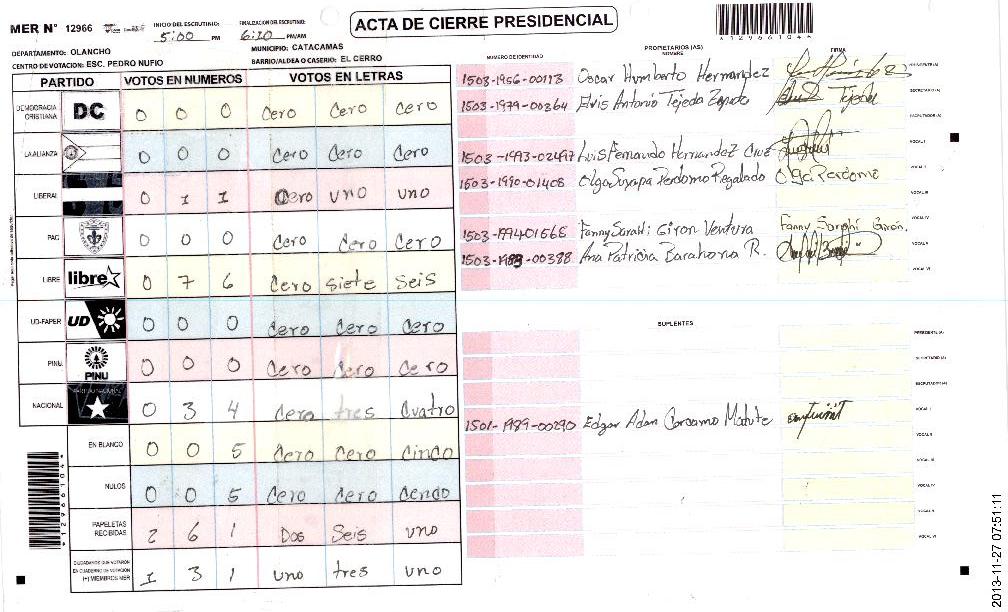 MER N° 12966 INICIO DEL ESCRUTINIO: 5:00 PM FINALIZACION DEL ESCRUTINIO: 6:10 PM/AM
ACTA DE CIERRE PRESIDENCIAL
*12966104*
DEPARTAMENTO: OLANCHO MUNICIPIO: CATACAMAS
CENTRO DE VOTACION: ESC. PEDRO NUFIO BARRIO/ALDEA O CASERIO: EL CERRO
PARTIDO VOTOS EN NUMEROS VOTOS EN LETRAS
DEMOCRACIA CRISTIANA DC 0 0 0 Cero Cero Cero
LA ALIANZA 0 0 0 Cero Cero Cero
LIBERAL 0 1 1 Cero uno uno
PAC 0 0 0 Cero Cero Cero
LIBRE libre 0 7 6 Cero siete seis
UD-FAPER UD 0 0 0 Cero Cero Cero
PINU PINU 0 0 0 Cero Cero Cero
NACIONAL 0 3 4 Cero tres Cuatro
EN BLANCO 0 0 5 Cero Cero Cinco
NULOS 0 0 5 Cero Cero
PAPELETAS RECIBIDAS 2 6 1 Dos Seis uno
CIUDADANOS QUE VOTARON EN CUADERNO DE VOTACION (+) MIEMBROS MER 1 3 1 uno tres uno
PROPIETARIOS (AS)
NUMERO DE IDENTIDAD NOMBRE FIRMA
Oscar Humberto Hernandez
1503-1979-00364 Elvis Antonio Tejeda Zapata Tejeda
Luis Fernando Hernandez Cruz
1503-1990-01408 Olga Suyapa Perdomo Regalado Olga Perdomo
1503-199401565 Fanny Sarahi Giron Ventura Fanny Sarahi Giron.
Ana Patricia Barahona R.
SUPLENTES
1501-1989-00290 Edgar Adan Carcamo Matute
2013-11-27 07:51:11